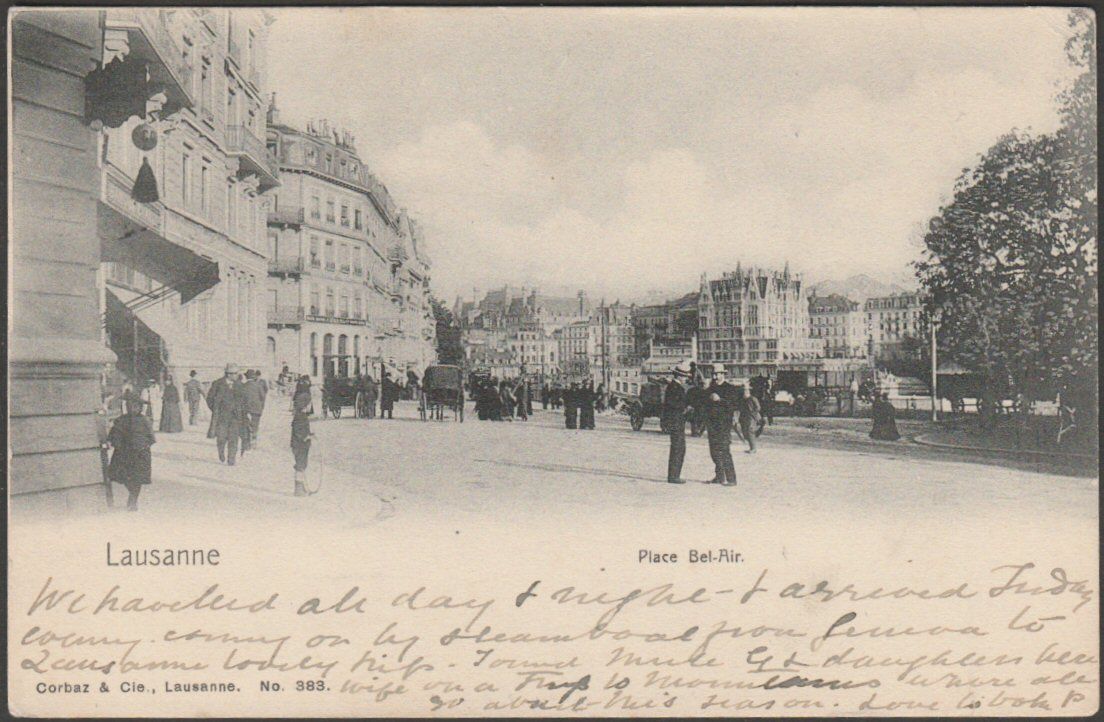 Lausanne
Place Bel-Air.
We travelled all day & night - & arrived Friday
evening. coming on by steamboat from Geneva to
Lausanne lovely trip. Found Mrs G & daughters here
Corbaz & Cie., Lausanne. No. 383.
wife on a trip to Mountains where all
go about this season. Love to both P